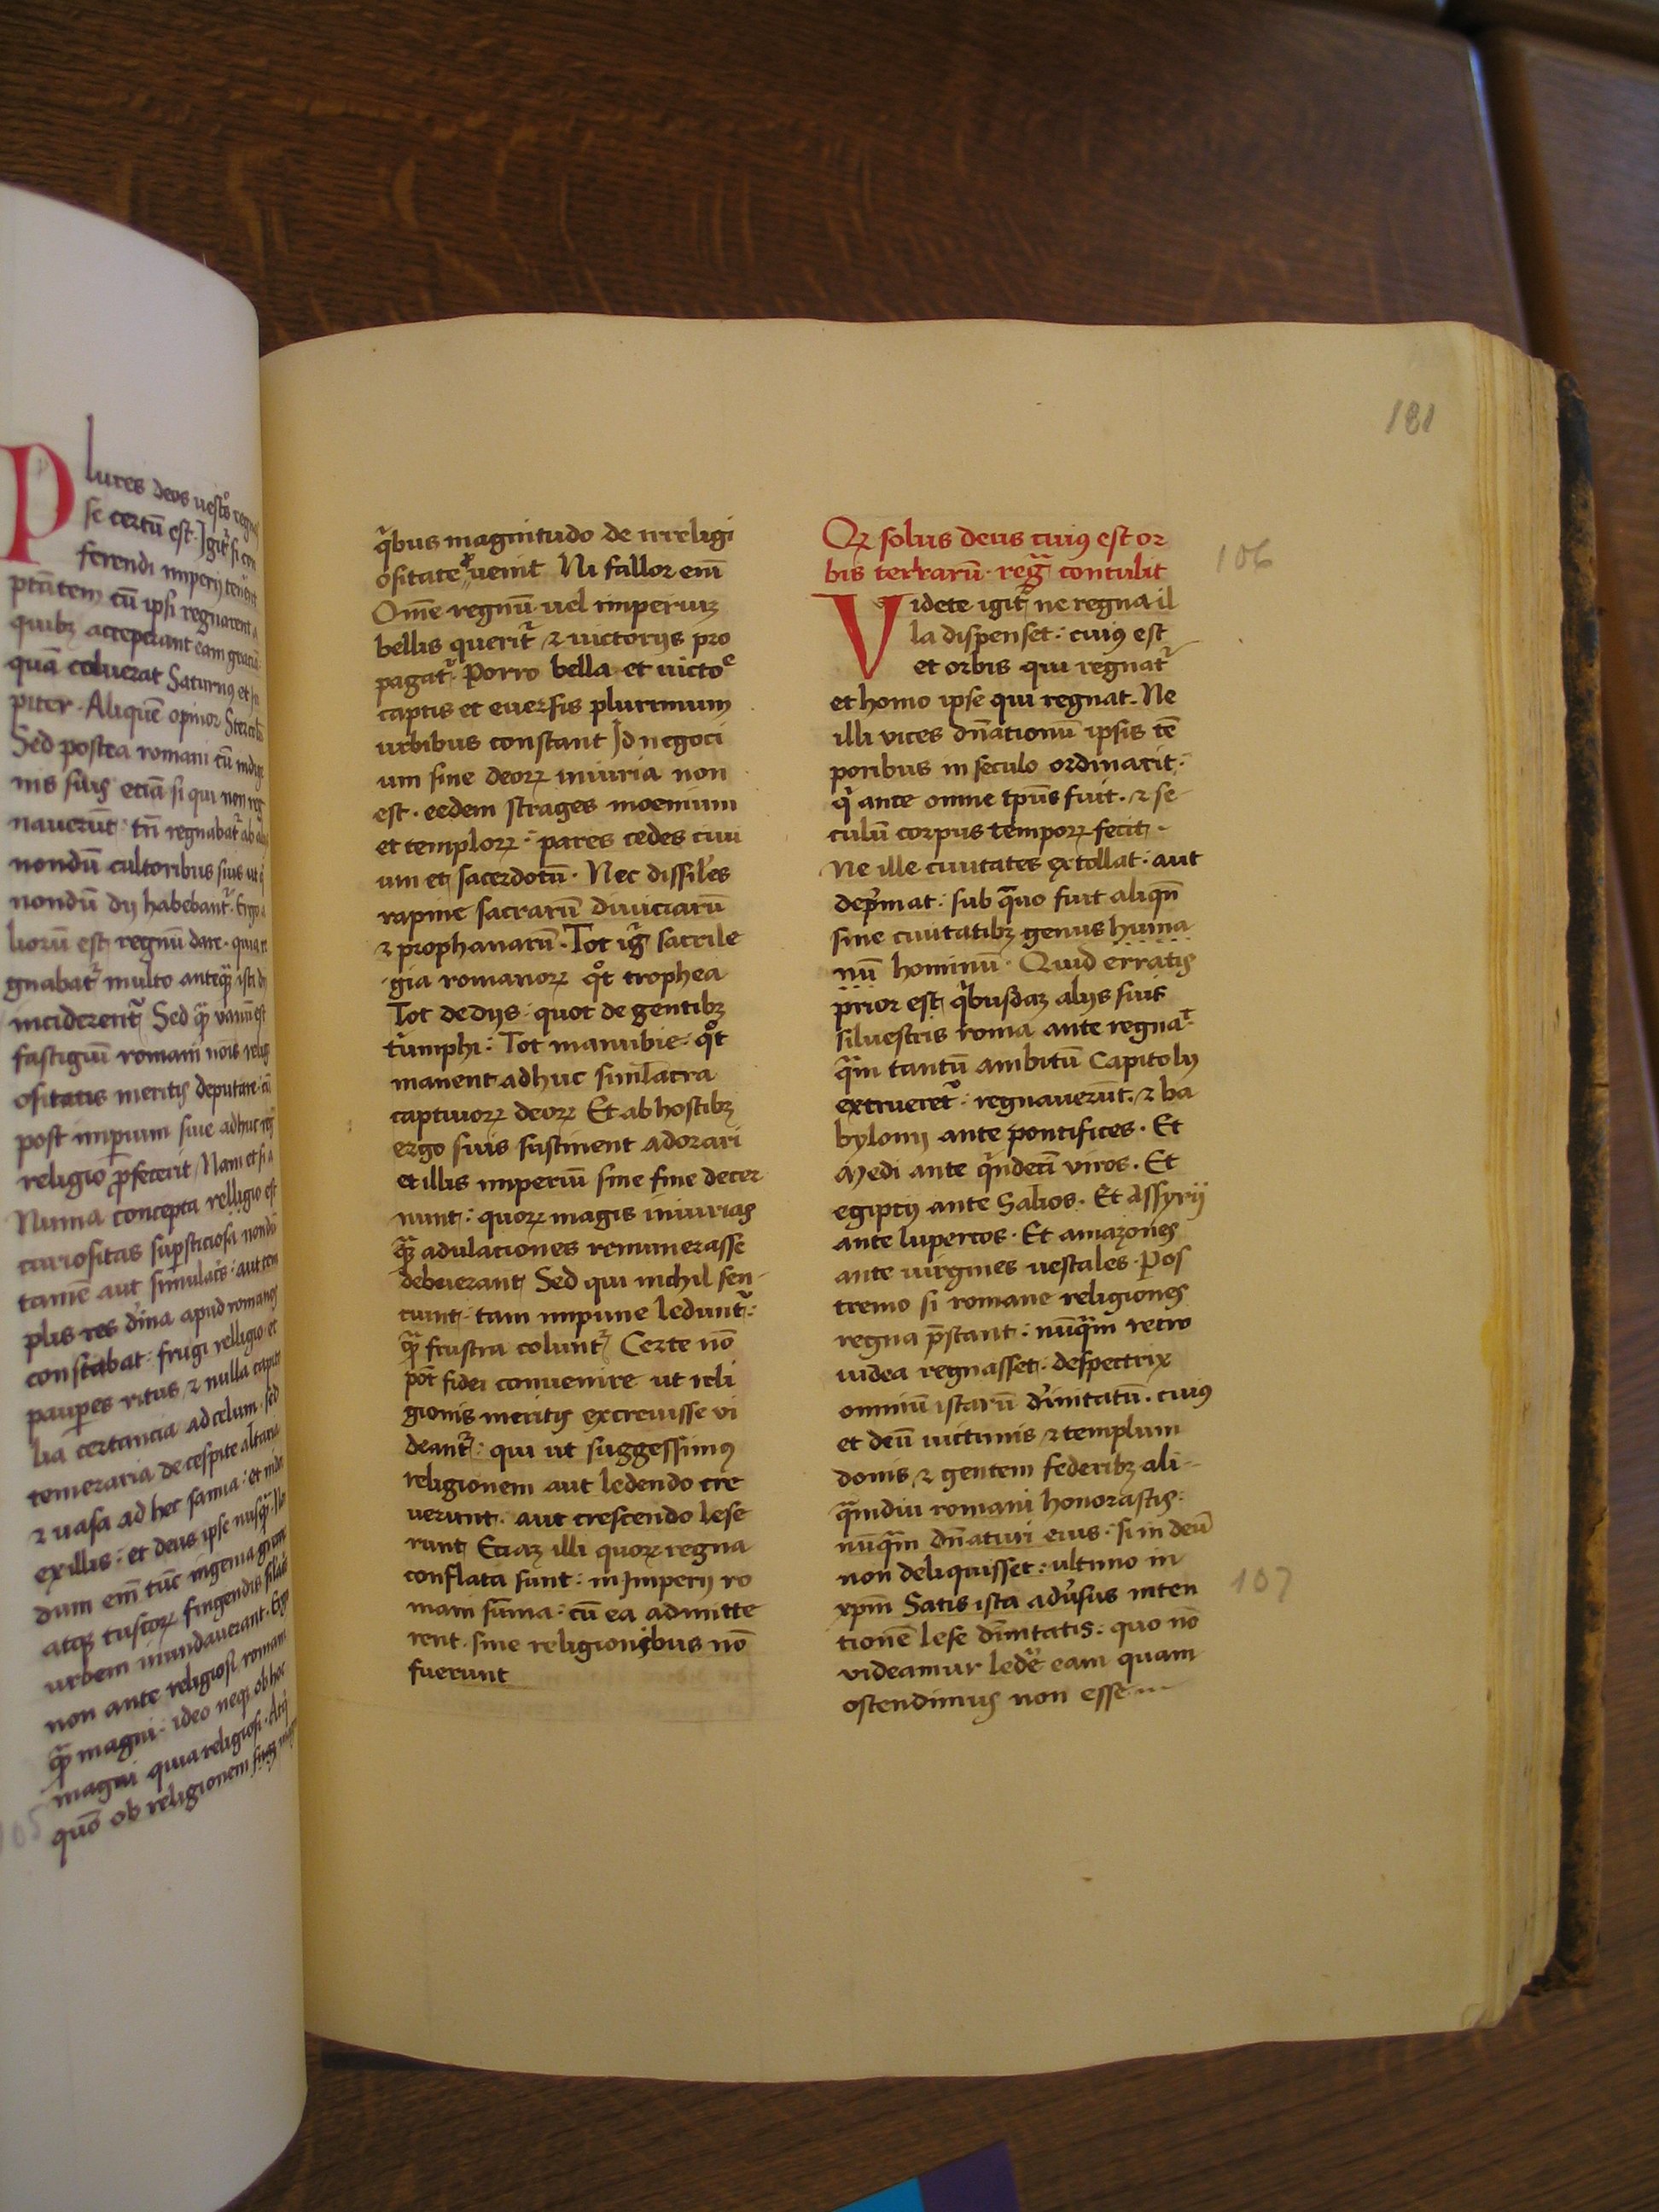 Plures deos vestros
se certū est. Igit̄ si con
ferendi imperij
ptātem cū ipsi regnarent a
quibȝ acceperant eam
quā coluerat Saturnꝰ et Iu
piter. Aliquē opinor
Sed postea romani cū
nis suis etiā si qui non reg
nauerūt: tn̄ regnabat̄
nondū cultoribus suis ut
nondū dij habebant̄. Ergo a
liorū est regnū dare. quia re
gnabat̄ multo anteqꝫ isti dij
inciderent̄ Sed qꝫ vanū est
fastigiū romani nōis religi
ositatis meritis deputare. cū
post imperium siue adhuc
religio ꝓfecerit Nam et si a
Numa concepta relligio est
curiositas suꝑsticiosa nondū
tamē aut simulacris: aut tem
plis res diuina apud romanos
constabat: frugi relligio et
pauꝑes ritus ⁊ nulla capito
lia certancia ad celum. sed
temeraria de cespite altaria
⁊ uasa ad hec samia: et nidor
ex illis: et deus ipse nusqꝫ
dum em̄ tūc ingenia
atqꝫ tuscoꝝ fingendis
urbem inundauerant. Ergo
non ante religiosi romani
qꝫ magni: ideo neqꝫ ob hoc
magni quia religiosi.
quō ob religionem
105
181
q̄bus magnitudo de irreligi
ositate ꝓuenit Ni fallor em̄
Om̄e regnū uel imperiuꝫ
bellis querit̄ ⁊ uictorijs pro
pagat̄. Porro bella et uicto
captis et euersis plurimum
urbibus constant Id negoci
um sine deoꝝ iniuria non
est. eedem strages moenium
et temploꝝ: pares cedes ciui
um et sacerdotū. Nec dissiles
rapine sacrarū diuiciarū
⁊ prophanarū. Tot iḡ sacrile
gia romanoꝝ q̊t trophea
Tot de dijs: quot de gentibȝ
tiumphi: Tot manubie: q̊t
manent adhuc simlacra
captiuoꝝ deoꝝ Et ab hostibȝ
ergo suis sustinent adorari
et illis imperiū sine fine decer
nunt: quoꝝ magis iniurias
qꝫ adulationes remunerasse
debuerant Sed qui nichil sen
ciunt: tam impune ledunt̄:
qꝫ frustra colunt̄ Certe nō
pōt fidei conuenire ut reli
gionis meritis excreuisse vi
deant̄: qui ut suggessimꝰ
religionem aut ledendo cre
uerunt. aut crescendo lese
runt Eciaꝫ illi quoꝝ regna
conflata sunt: in Imperij ro
mani sūma: cū ea admitte
rent. sine religionibus nō
fuerunt
Qꝫ solus deus cuiꝰ est or
bis terrarū. regᷓ contulit
106
Videte igit̄ ne regna il
la dispenset: cuiꝰ est
et orbis qui regnat̄
et homo ipse qui regnat. Ne
illi vices dn̄ationū ipsis tē
poribus in seculo ordinarit:
q̇ ante omne tp̄us fuit. ⁊ se
culū corpus tempoꝝ fecit.
Ne ille ciuitates extollat. aut
dep̄mat: sub quo fuit aliqn̄
sine ciuitatibȝ genus huma
nū hominū. Quid erratis
prior est q̄busdaꝫ alijs suis
siluestris roma ante regnat
qᷓm tantū ambitū Capitolij
extrueret̄: regnauerūt. ⁊ ba
bylonij ante pontifices. Et
Medi ante q̄ndeci viros. Et
egiptij ante Salios. Et Assyrij
ante lupercos. Et amazones
ante uirgines uestales. Pos
tremo si romane religiones
regna p̄stant: nūqᷓm retro
iudea regnasset. despectrix
omniū istarū diuinitatū. cuiꝰ
et deū uictimis ⁊ templum
donis ⁊ gentem federibȝ ali
qᷓmdiu romani honorastis:
nūqᷓm dn̄aturi eius: si in deū
non deliquisset: ultimo in
107
xpm̄ Satis ista adūsus inten
tionē lese diuinitatis: quo nō
videamur ledere eam quam
ostendimus non esse